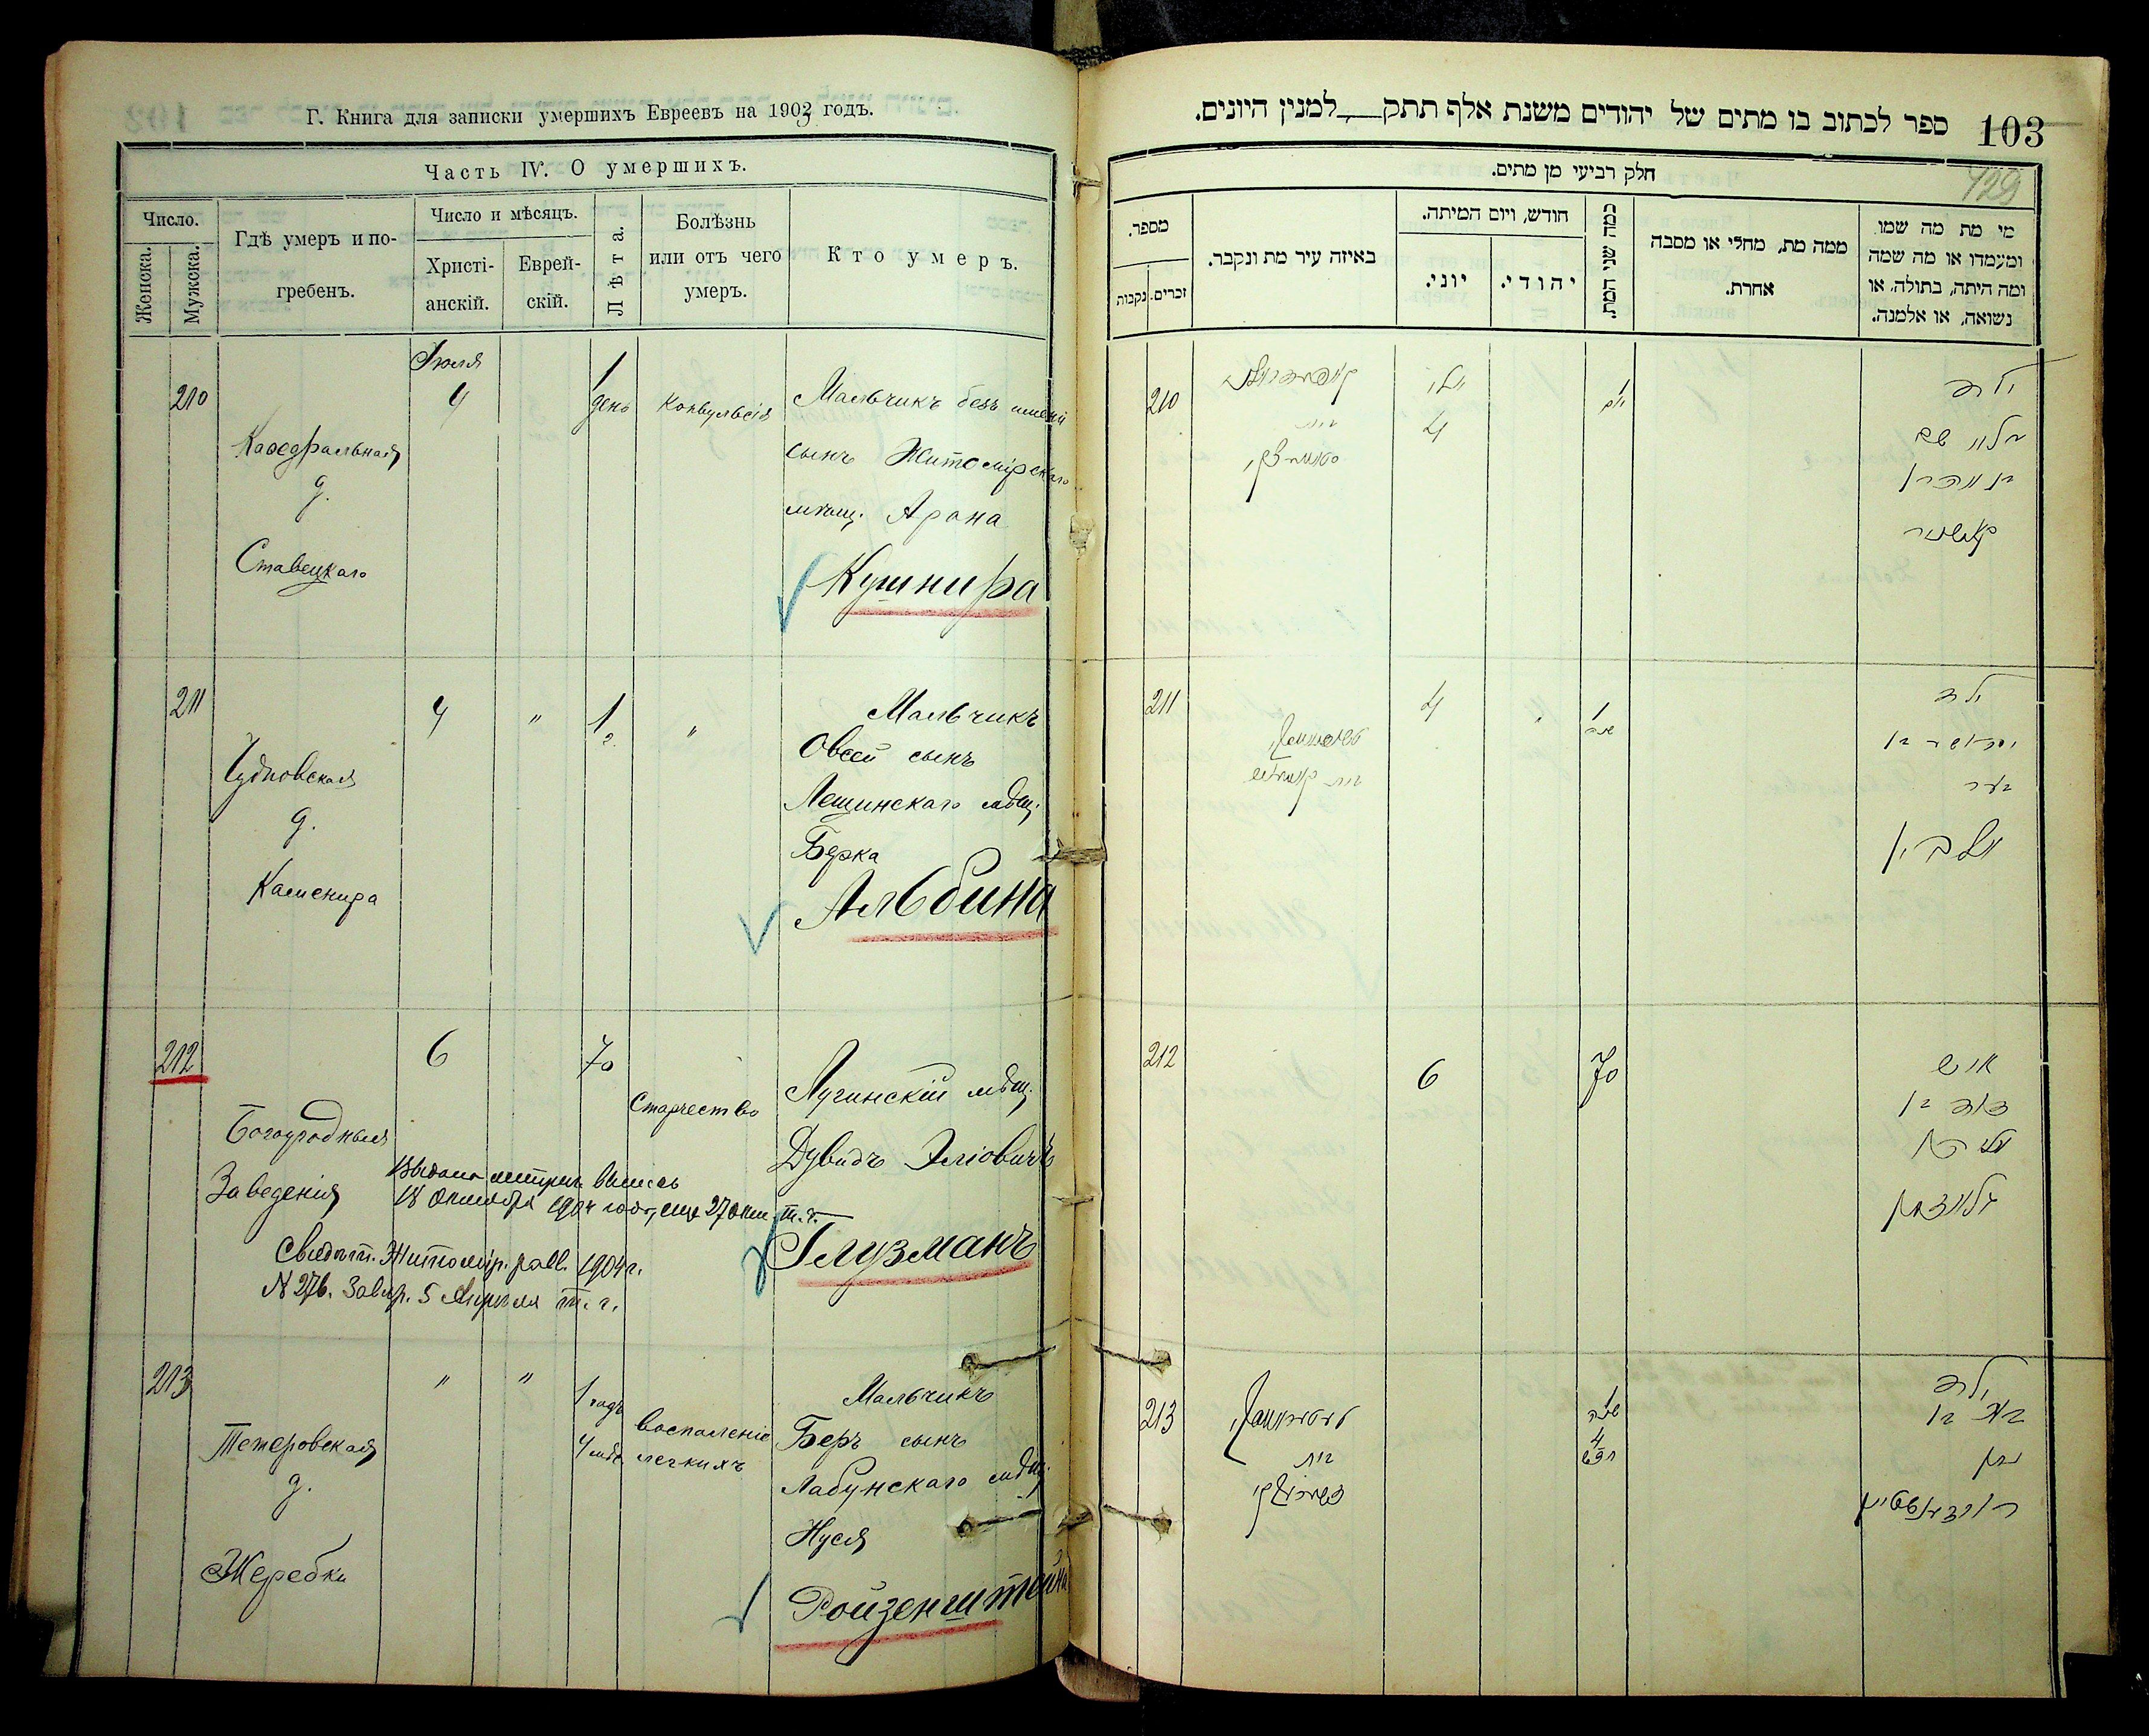 Г. Книга для записки умершихъ Евреевъ на 1903 годъ.
Часть IV. О умершихъ.
Число.
Женска.
Мужска.
Гдѣ умеръ и по-
гребенъ.
Число и мѣсяцъ.
Христі-
анскій.
Еврей-
скій.
Лѣта.
Болѣзнь
или отъ чего
умеръ.
Кто умеръ.
210
Каѳедральная
д.
Ставецкаго
Іюля
4
1
день
конвульсія
Мальчикъ безъ имени
сынъ Житомірскаго
мѣщ. Арона
Кушнира
211
Чудновская
д.
Каменира
4
"
1
г.
"
Мальчикъ
Овсей сынъ
Лещинскаго мѣщ.
Берка
Альбина
212
Богоугодныя
Заведенія
6
70
Старчество
Лугинскій мѣщ.
Дувидъ Эліовичъ
Глузманъ
Выдана метрич. выпись
18 октября 1904 года, еще 27 окт. т. г.
Свидѣт. Житомір. равв. 1904 г.
N 276. Завѣр. 5 Апрѣля т. г.
213
Тетеровская
д.
Жеребки
"
"
1 годъ
4 мѣс
воспаленіе
легкихъ
Мальчикъ
Беръ сынъ
Лабунскаго мѣщ.
Нуся
Ройзенштейна
ספר לכתוב בו מתים של יהודים משנת אלף תתק למנין היונים.
103
129
חלק רביעי מן מתים.
מספר.
זכרים.
נקבות
באיזה עיר מת ונקבר.
חודש, ויום המיתה.
יוני.
יהודי.
כמה שני המת.
ממה מת, מחלי או מסבה
אחרת.
מי מת מה שמו
ומעמדו או מה שמה
ומה היתה, בתולה, או
נשואה, או אלמנה.
210
יולי
4
1
יום
ילד
בלי שם
בן אהרן
קושניר
211
4
"
1
שנה
ילד
בן
בער
אלבין
212
6
70
איש
דוד בן
גלוזמן
213
בית
1
שנה
4
חדש
ילד
בער בן
רויזענשטיין